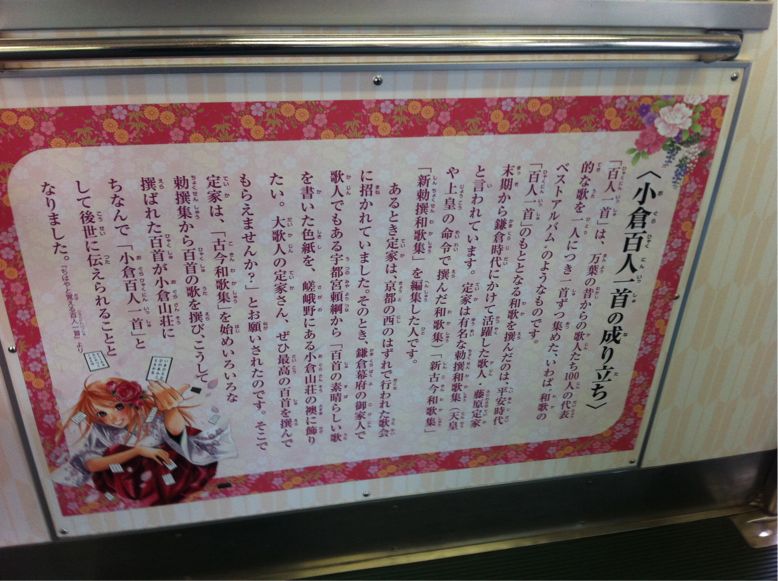 〈小倉百人一首の成り立ち〉
「百人一首」は、万葉の昔からの歌人たち100人の代表
的な歌を一人につき一首ずつ集めた、いわば"和歌の
ベストアルバム"のようなものです。
「百人一首」のもととなる和歌を撰んだのは、平安時代
末期から鎌倉時代にかけて活躍した歌人・藤原定家
と言われています。定家は有名な勅撰和歌集（天皇
や上皇の命令で撰んだ和歌集）「新古今和歌集」
「新勅撰和歌集」を編集した人です。
あるとき定家は、京都の西のはずれで行われた歌会
に招かれていました。そのとき、鎌倉幕府の御家人で
歌人でもある宇都宮頼綱から「百首の素晴らしい歌
を書いた色紙を、嵯峨野にある小倉山荘の襖に飾り
たい。大歌人の定家さん、ぜひ最高の百首を撰んで
もらえませんか？」とお願いされたのです。そこで
定家は、「古今和歌集」を始めいろいろな
勅撰集から百首の歌を撰び、こうして
撰ばれた百首が小倉山荘に
ちなんで「小倉百人一首」と
して後世に伝えられることと
なりました。